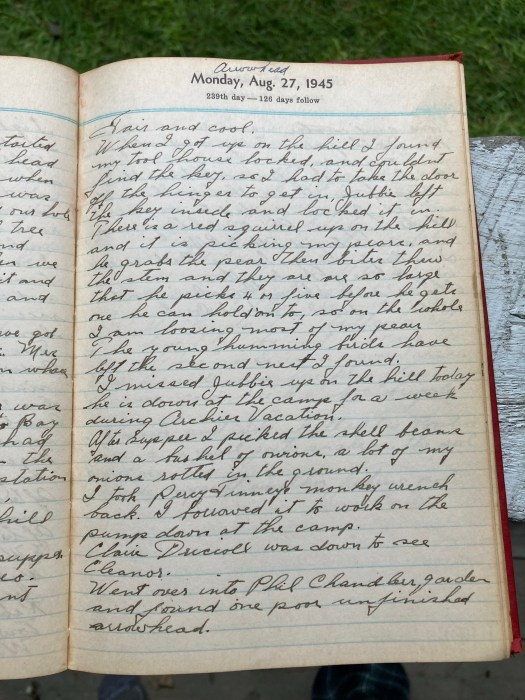 tested
head
when
was
our hole
tree
nd
we
it and
and
we got
Mrs
n when
was
Bay
had
the
station
hill
supper
nt
Arrowhead
Monday, Aug. 27, 1945
239th day — 126 days follow
Fair and cool.
When I got up on the hill I found
my tool house locked, and couldnt
find the key, so I had to take the door
off the hinges to get in, Jubbie left
the key inside and locked it in.
There is a red squirrel up on the hill
and it is picking my pears, and
he grabs the pear then bites threw
the stem and they are are so large
that he picks 4 or five before he gets
one he can hold on to, so on the whole
I am loosing most of my pears
The young humming birds have
left the second nest I found.
I missed Jubbie up on the hill today
he is down at the camp for a week
during Archies Vacation.
After supper I picked the shell beans
and a bushel of onions, a lot of my
onions rotted in the ground.
I took Percy Finneys monkey wrench
back. I borrowed it to work on the
pump down at the camp.
Claire Driscoll was down to see
Eleanor.
Went over into Phil Chandlers, garden
and found one poor unfinished
arrowhead.